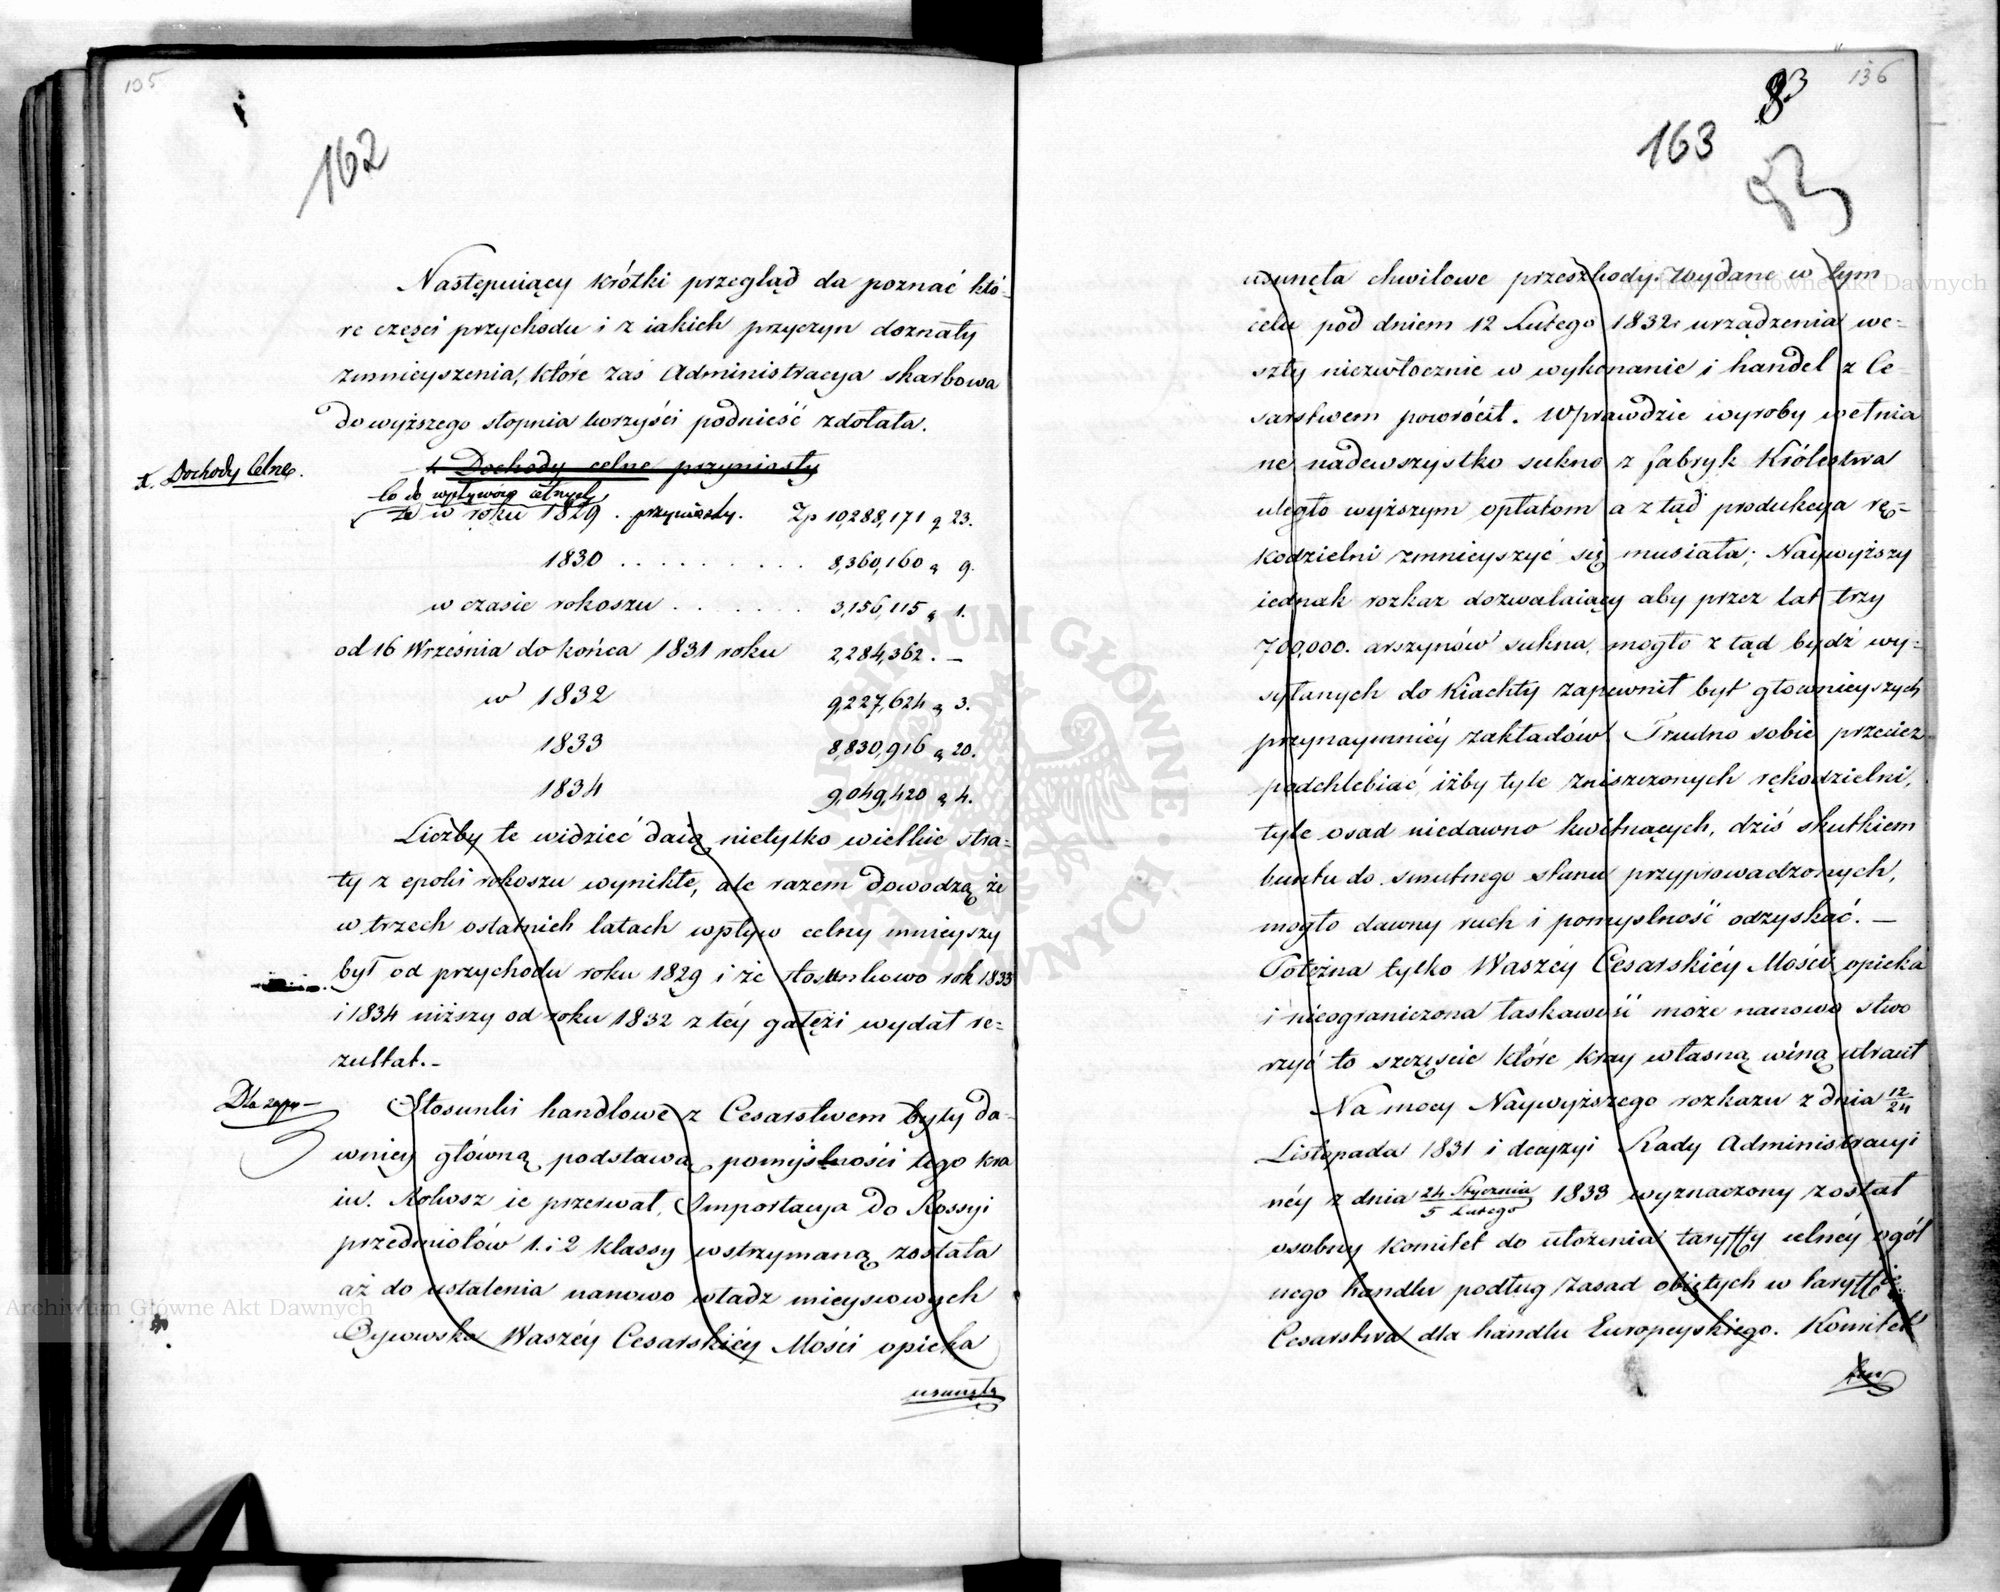 105
162
Następuiący krótki przegląd da poznać któ-
re części przychodu i z iakich przyczyn doznały
zmnieyszenia, które zaś Administracya skarbowa
do wyższego stopnia korzyści podnieść zdołała.
1. Dochody Celne.
1. Dochody celne przyniosły
Co do wpływów celnych,
te w roku 1829. przyniosły. Zp 10,288,171 g 23.
1830 . . . . . . . . . . 8,360,160 „ 9.
w czasie rokoszu . . . . . . . 3,156,115 „ 1.
od 16 Września do końca 1831 roku 2,284,362. —
w 1832 9,227,624 „ 3.
1833 8,830,916 „ 20.
1834 9,049,420 „ 4.
Liczby te widzieć daią nietylko wielkie stra-
ty z epoki rokoszu wynikłe, ale razem dowodzą że
w trzech ostatnich latach wpływ celny mnieyszy
był od przychodu roku 1829 i że stosunkowo rok 1833
i 1834 niższy od roku 1832 z téy gałęzi wydał re-
zultat. —
Dla
Stosunki handlowe z Cesarstwem były da-
wniey główną podstawą pomyślności tego kra
iu. Rokosz ie przerwał, Importacya do Rossyi
przedmiotów 1. i 2 klassy wstrzymaną została
aż do ustalenia nanowo władz mieyscowych
Oycowska Waszéy Cesarskiéy Mości opieka
usunęła
136
83
163
83
usunęła chwilowe przeszkody. Wydane w tym
celu pod dniem 12 Lutego 1832r urządzenia we-
szły niezwłocznie w wykonanie i handel z Ce-
sarstwem powrócił. Wprawdzie wyroby wełnia
ne nadewszystko sukno z fabryk Królestwa
uległo wyższym opłatom a ztąd produkcya rę-
kodzielni zmnieyszyć się musiała; Naywyższy
iednak rozkaz dozwalaiący aby przez lat trzy
700,000. arszynów sukna mogło ztąd bydź wy-
syłanych do Kiachty zapewnił byt głownieyszych
przynaymniéy zakładów. Trudno sobie przecież
podchlebiać iżby tyle zniszczonych rękodzielni,
tyle osad niedawno kwitnących, dziś skutkiem
buntu do smutnego stanu przyprowadzonych,
mogło dawny ruch i pomyślność odzyskać. —
Potężna tylko Waszéy Cesarskiéy Mości opieka
i nieograniczona łaskawość może nanowo stwo
rzyć to szczęście które kray własną winą utracił
Na mocy Naywyższego rozkazu z dnia 12/24
Listopada 1831 i decyzyi Rady Administracyi
néy z dnia 24 Stycznia/5 Lutego 1833 wyznaczony został
osobny Komitet do ułożenia taryffy celnéy ogól
nego handlu podług zasad obiętych w taryffie
Cesarstwa dla handlu Europeyskiego. Komitet
ten
Archiwum Główne Akt Dawnych
Archiwum Główne Akt Dawnych
ARCHIWUM GŁÓWNE AKT DAWNYCH